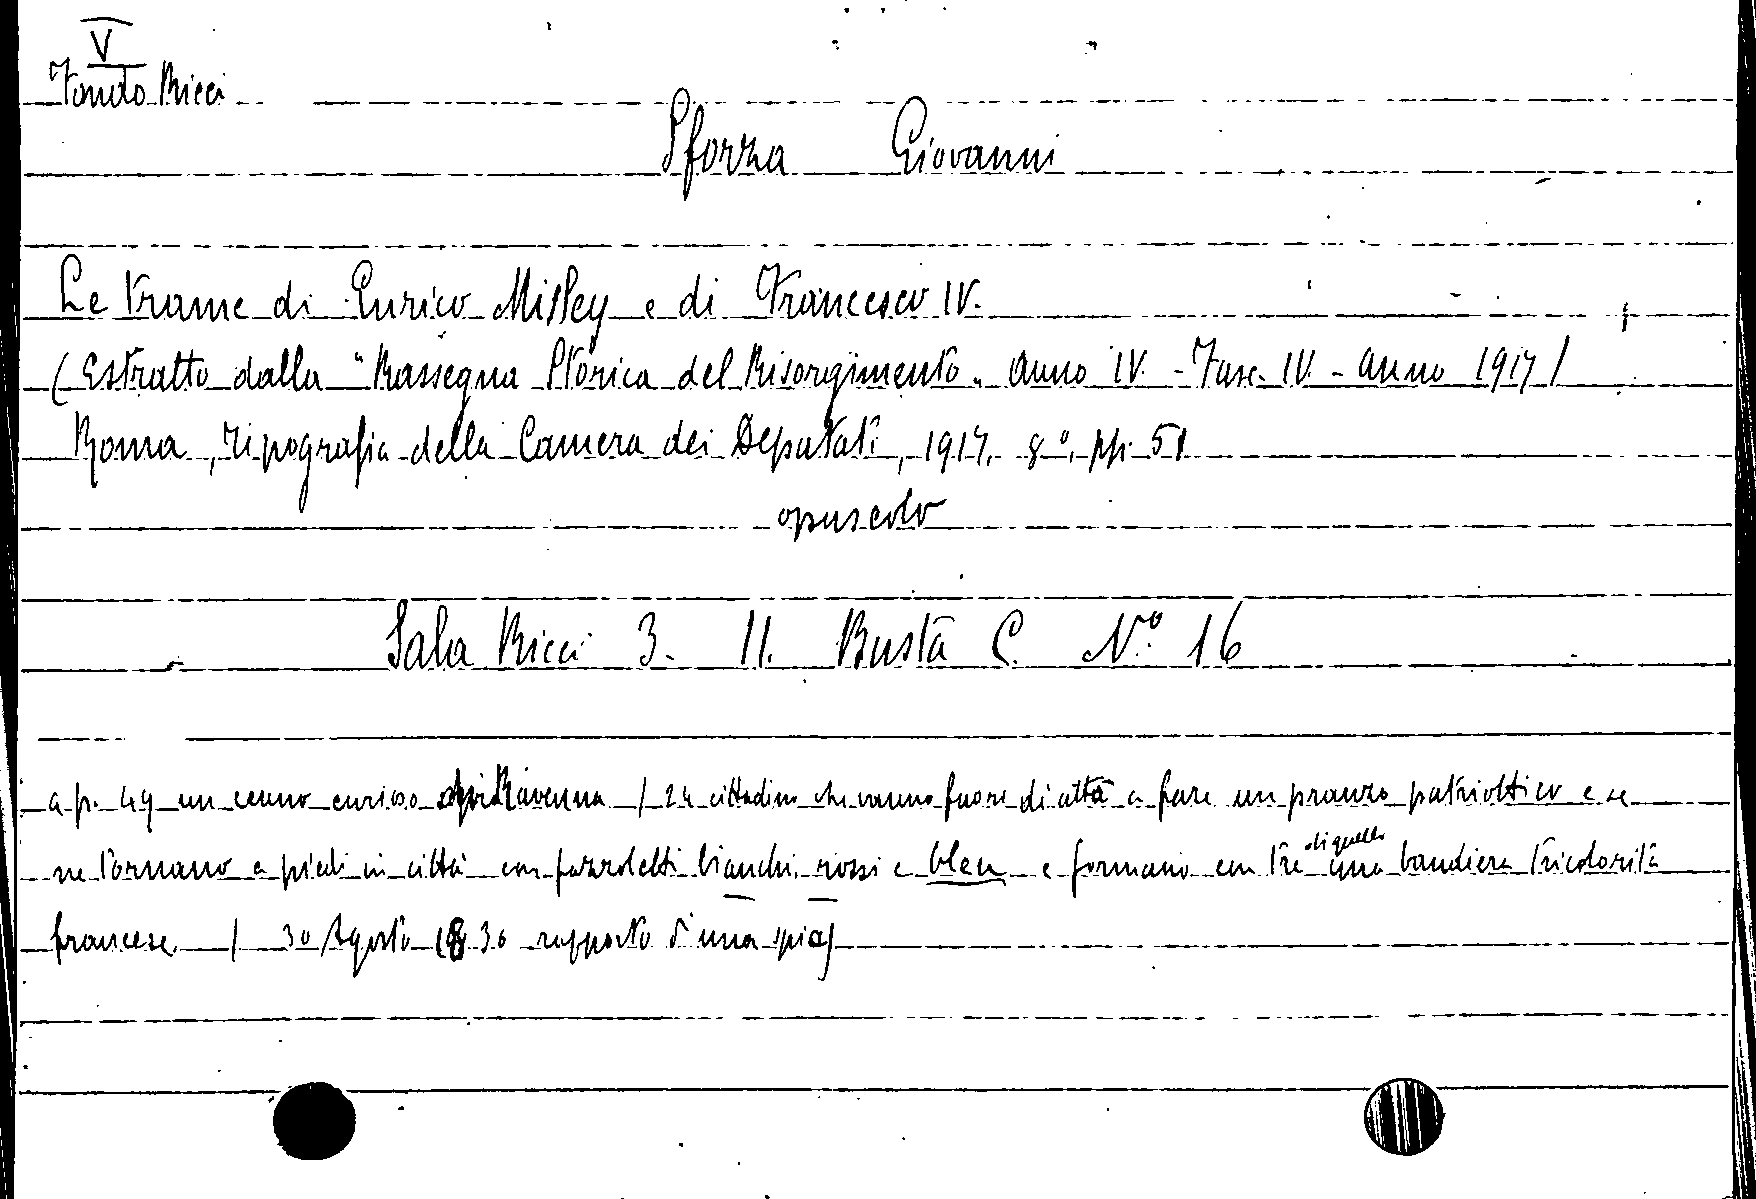 V
Fondo Ricci
Sforza Giovanni
Le trame di Enrico Misley e di Francesco IV.
(Estratto dalla "Rassegna Storica del Risorgimento" anno IV. - Fasc. IV. - anno 1917)
Roma, tipografia della Camera dei Deputati, 1917. 8º. pp. 51
opuscolo
Sala Ricci 3. II. Busta C. Nº. 16
a p. 49 un cenno curioso Ravenna / 24 cittadini che vanno fuori di città a fare un pranzo patriottico e se
di quelli
ne tornano a piedi in città con fazzoletti bianchi, rossi e bleu e formano con tre una bandiera
francese / 30 Agosto 1830 rapporto d'una spia)